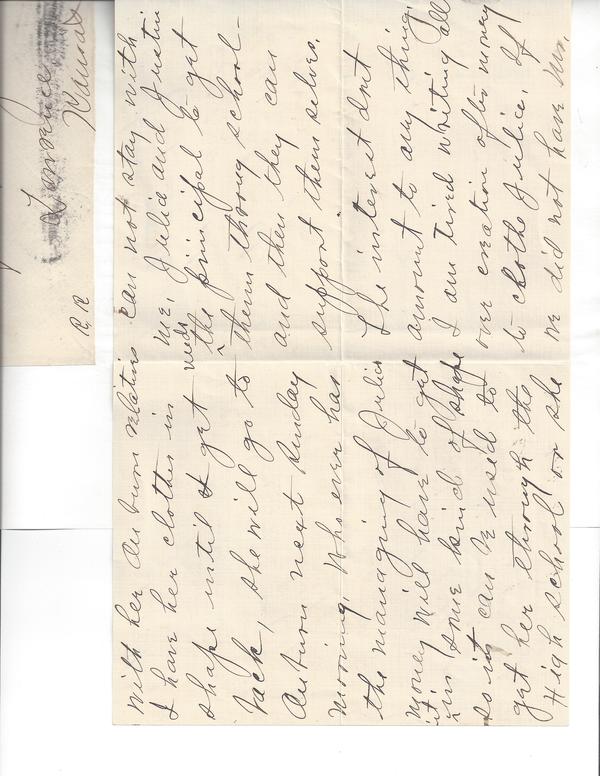 With her Auturn relatives
I have her clothes in
shape until I get
back, she will go to
Auturn next Sunday
morning. Who ever has
the managing of Julia
money will have to get
it in some kind of shape
so it can be used to
get her through the
High school or she
can not stay with
me. Julia and Justin
needs the principal to get
them throug school-
and then they can
support them selves.
The interest dont
amount to any thing,
I am tired writing all
over creation after money
to clothe Julia. If
we did not have Mrs.
Lawrence
Kansas
R. R